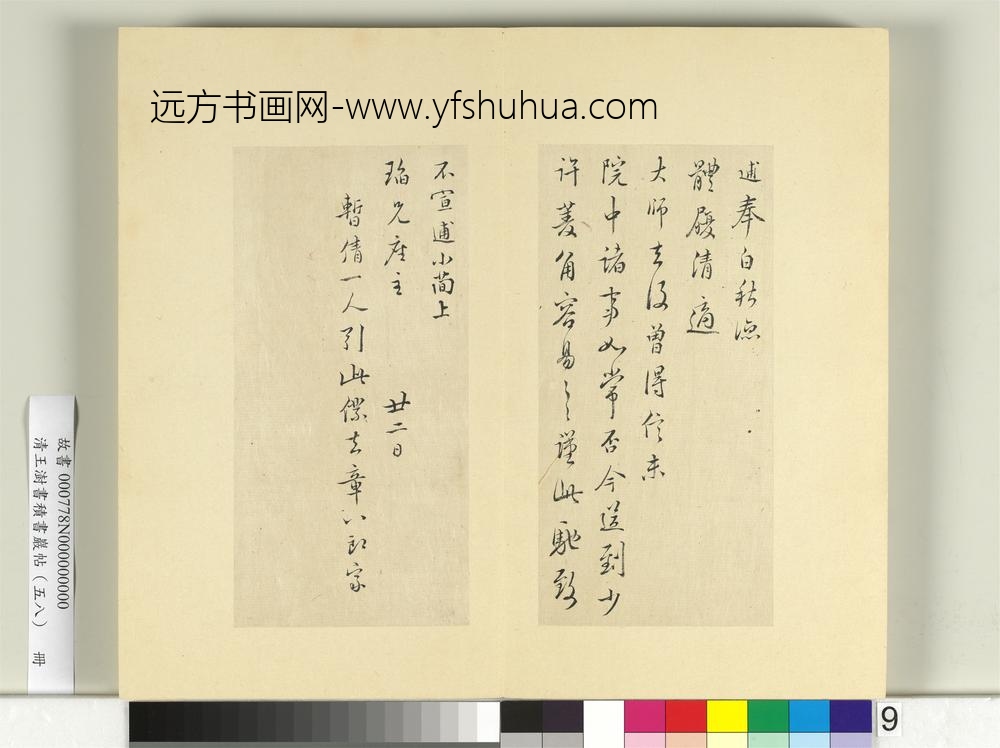 远方书画网-www.yfshuhua.com
逋奉白秋凉
體履清適
大師去後曾得信未
院中諸事如常否今送到少
許菱角容易之謹此馳致
不宣逋小簡上
瑫兄座主 廿二日
暫倩一人引此僕去章八郎家
故書 000778N000000000
清王澍書積書巖帖（五八） 冊
9